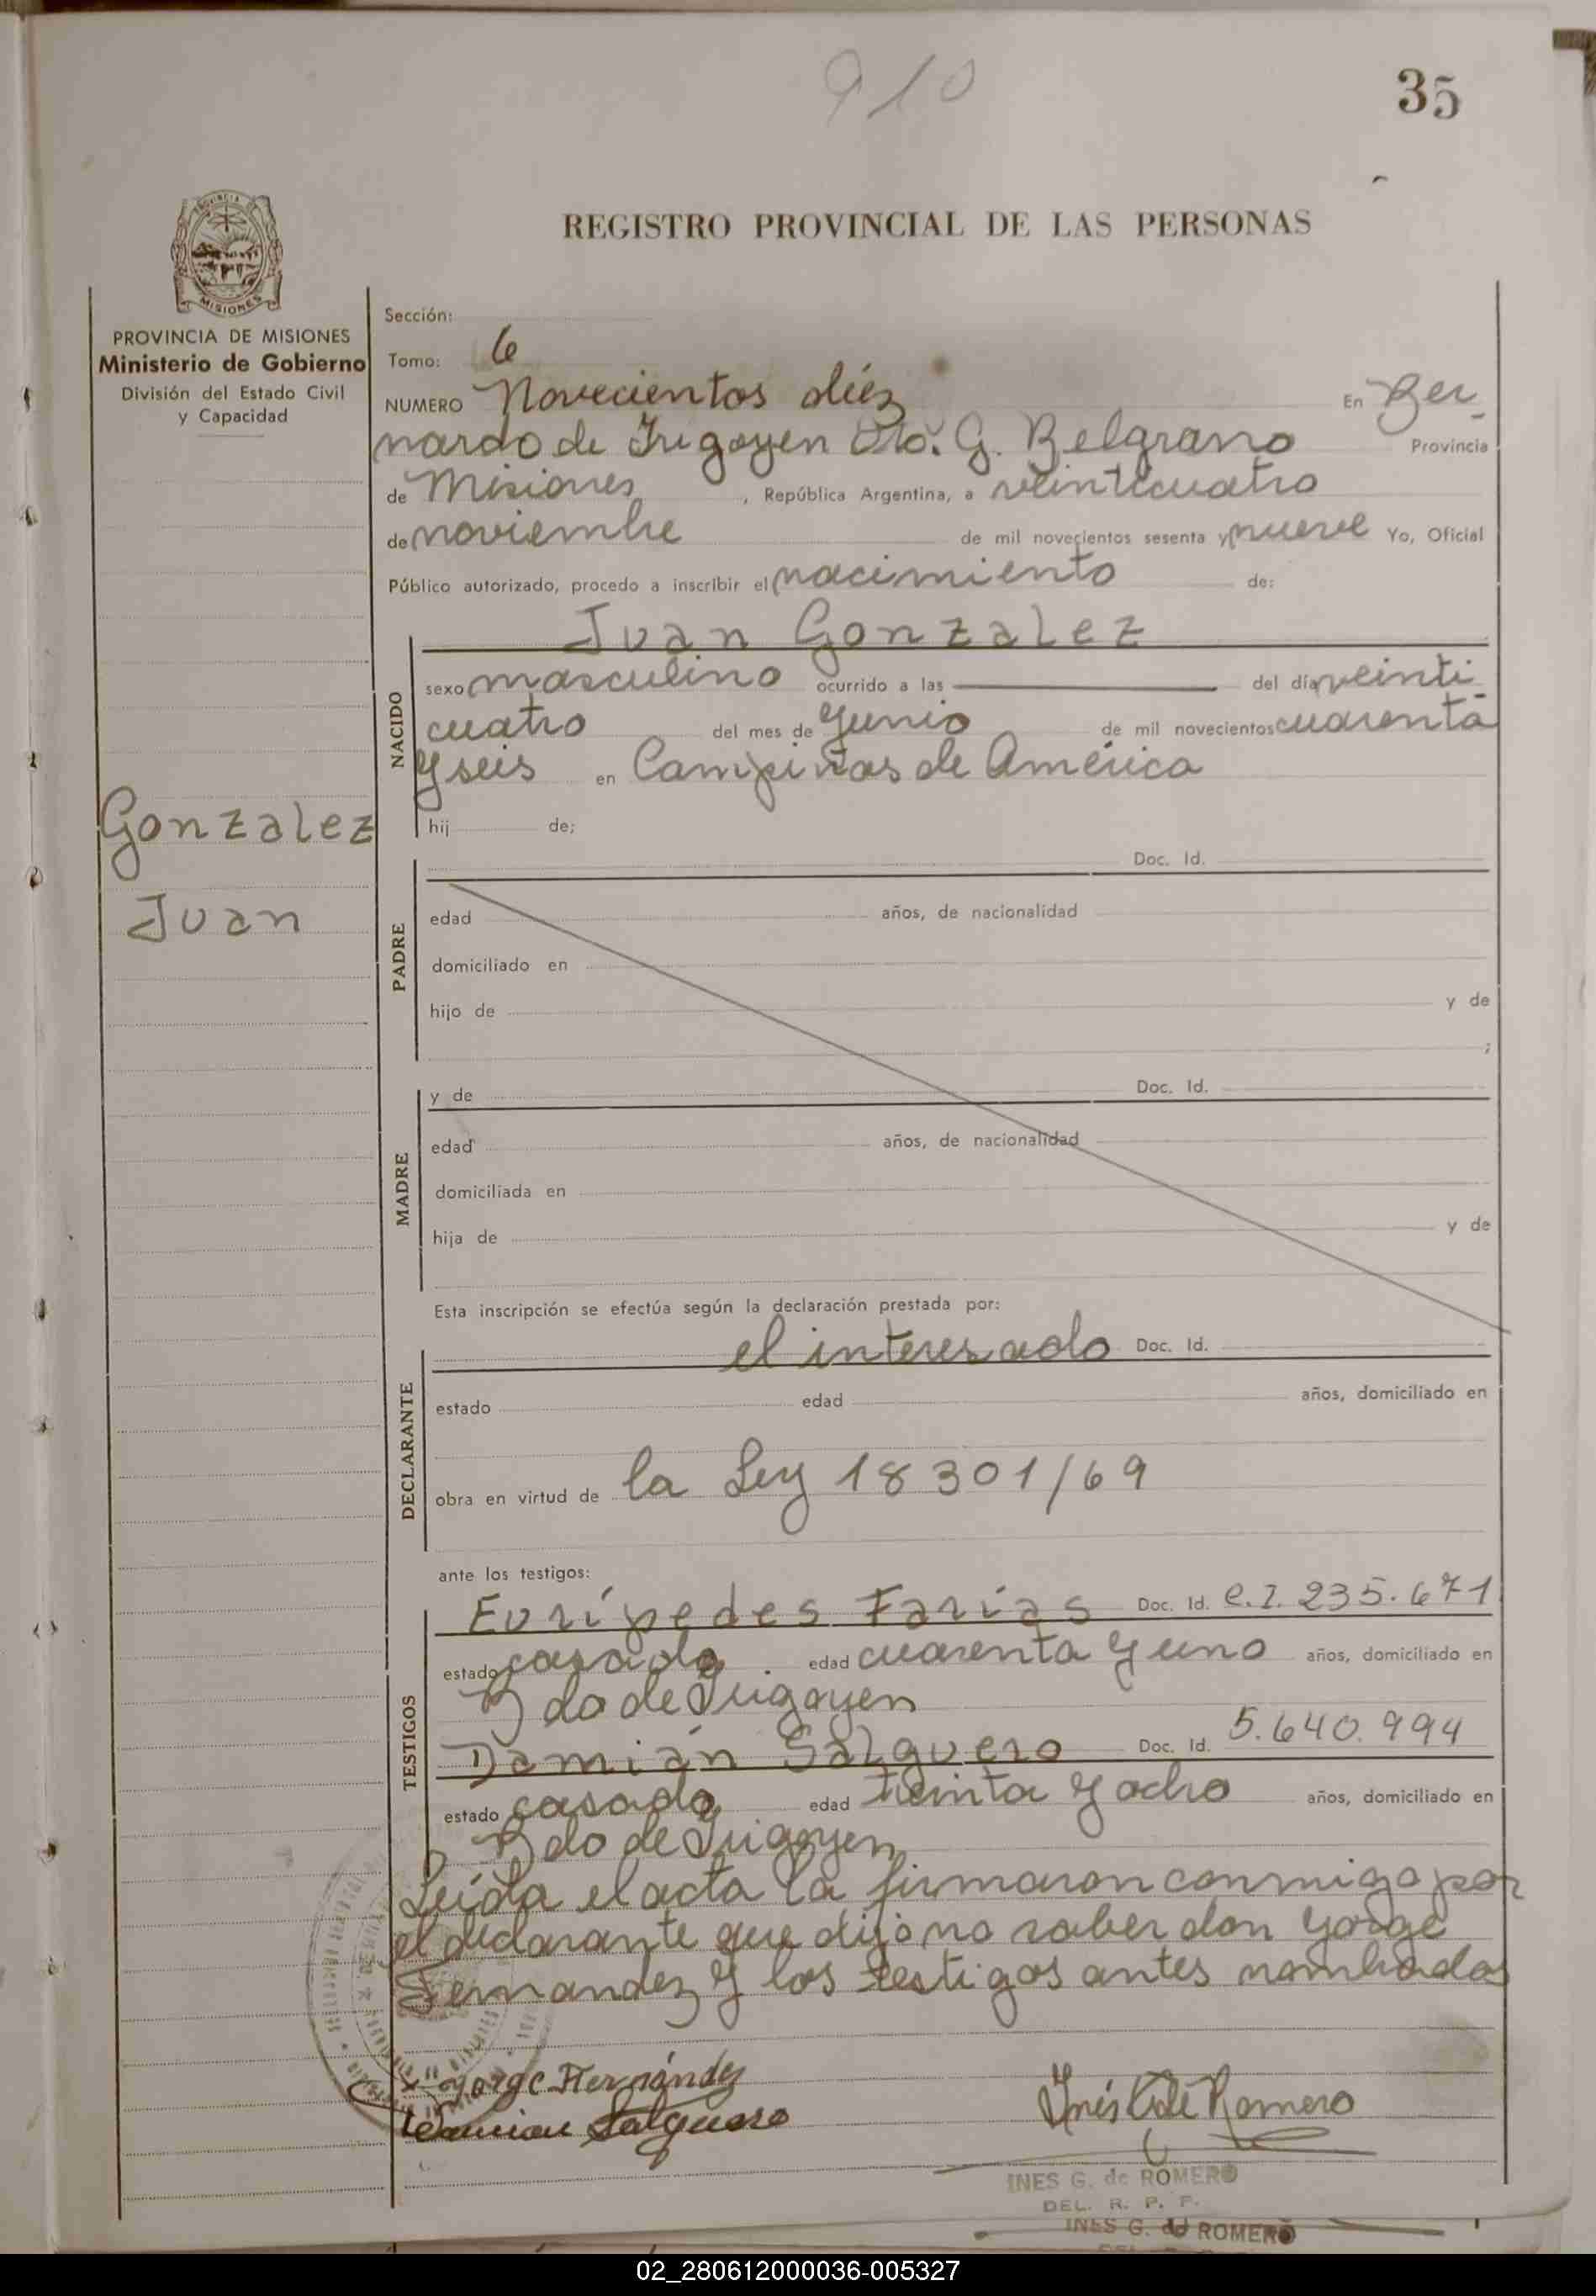 910
35
REGISTRO PROVINCIAL DE LAS PERSONAS
MISIONES
PROVINCIA DE MISIONES
Ministerio de Gobierno
División del Estado Civil
y Capacidad
Sección:
Tomo: 6
NUMERO Novecientos diéz En Ber-
nardo de Irigoyen Dto. G. Belgrano Provincia
de Misiones, República Argentina, a veinticuatro
de noviembre de mil novecientos sesenta y nueve Yo, Oficial
Público autorizado, procedo a inscribir el nacimiento de:
Juan Gonzalez
NACIDO
sexo masculino ocurrido a las del día veinti-
cuatro del mes de Junio de mil novecientos cuarenta
y seis en Campiñas de América
hij de;
Gonzalez
Juan
PADRE
Doc. Id.
edad años, de nacionalidad
domiciliado en
hijo de y de
;
MADRE
y de Doc. Id.
edad años, de nacionalidad
domiciliada en
hija de y de
Esta inscripción se efectúa según la declaración prestada por:
DECLARANTE
el interesado Doc. Id.
estado edad años, domiciliado en
obra en virtud de la Ley 18301/69
ante los testigos:
TESTIGOS
Eurípedes Farías Doc. Id. C.I. 235.671
estado casado edad cuarenta y uno años, domiciliado en
Bdo de Irigoyen
Damián Salguero Doc. Id. 5.640.994
estado casado edad treinta y ocho años, domiciliado en
Bdo de Irigoyen
Leída el acta la firmaron conmigo por
el declarante que dijo no saber don Jorge
Fernandez y los testigos antes nombrados
Jorge Fernández
Damian Salguero
Inés G de Romero
INES G. de ROMERO
DEL. R. P. P.
INES G. de ROMERO
02_280612000036-005327